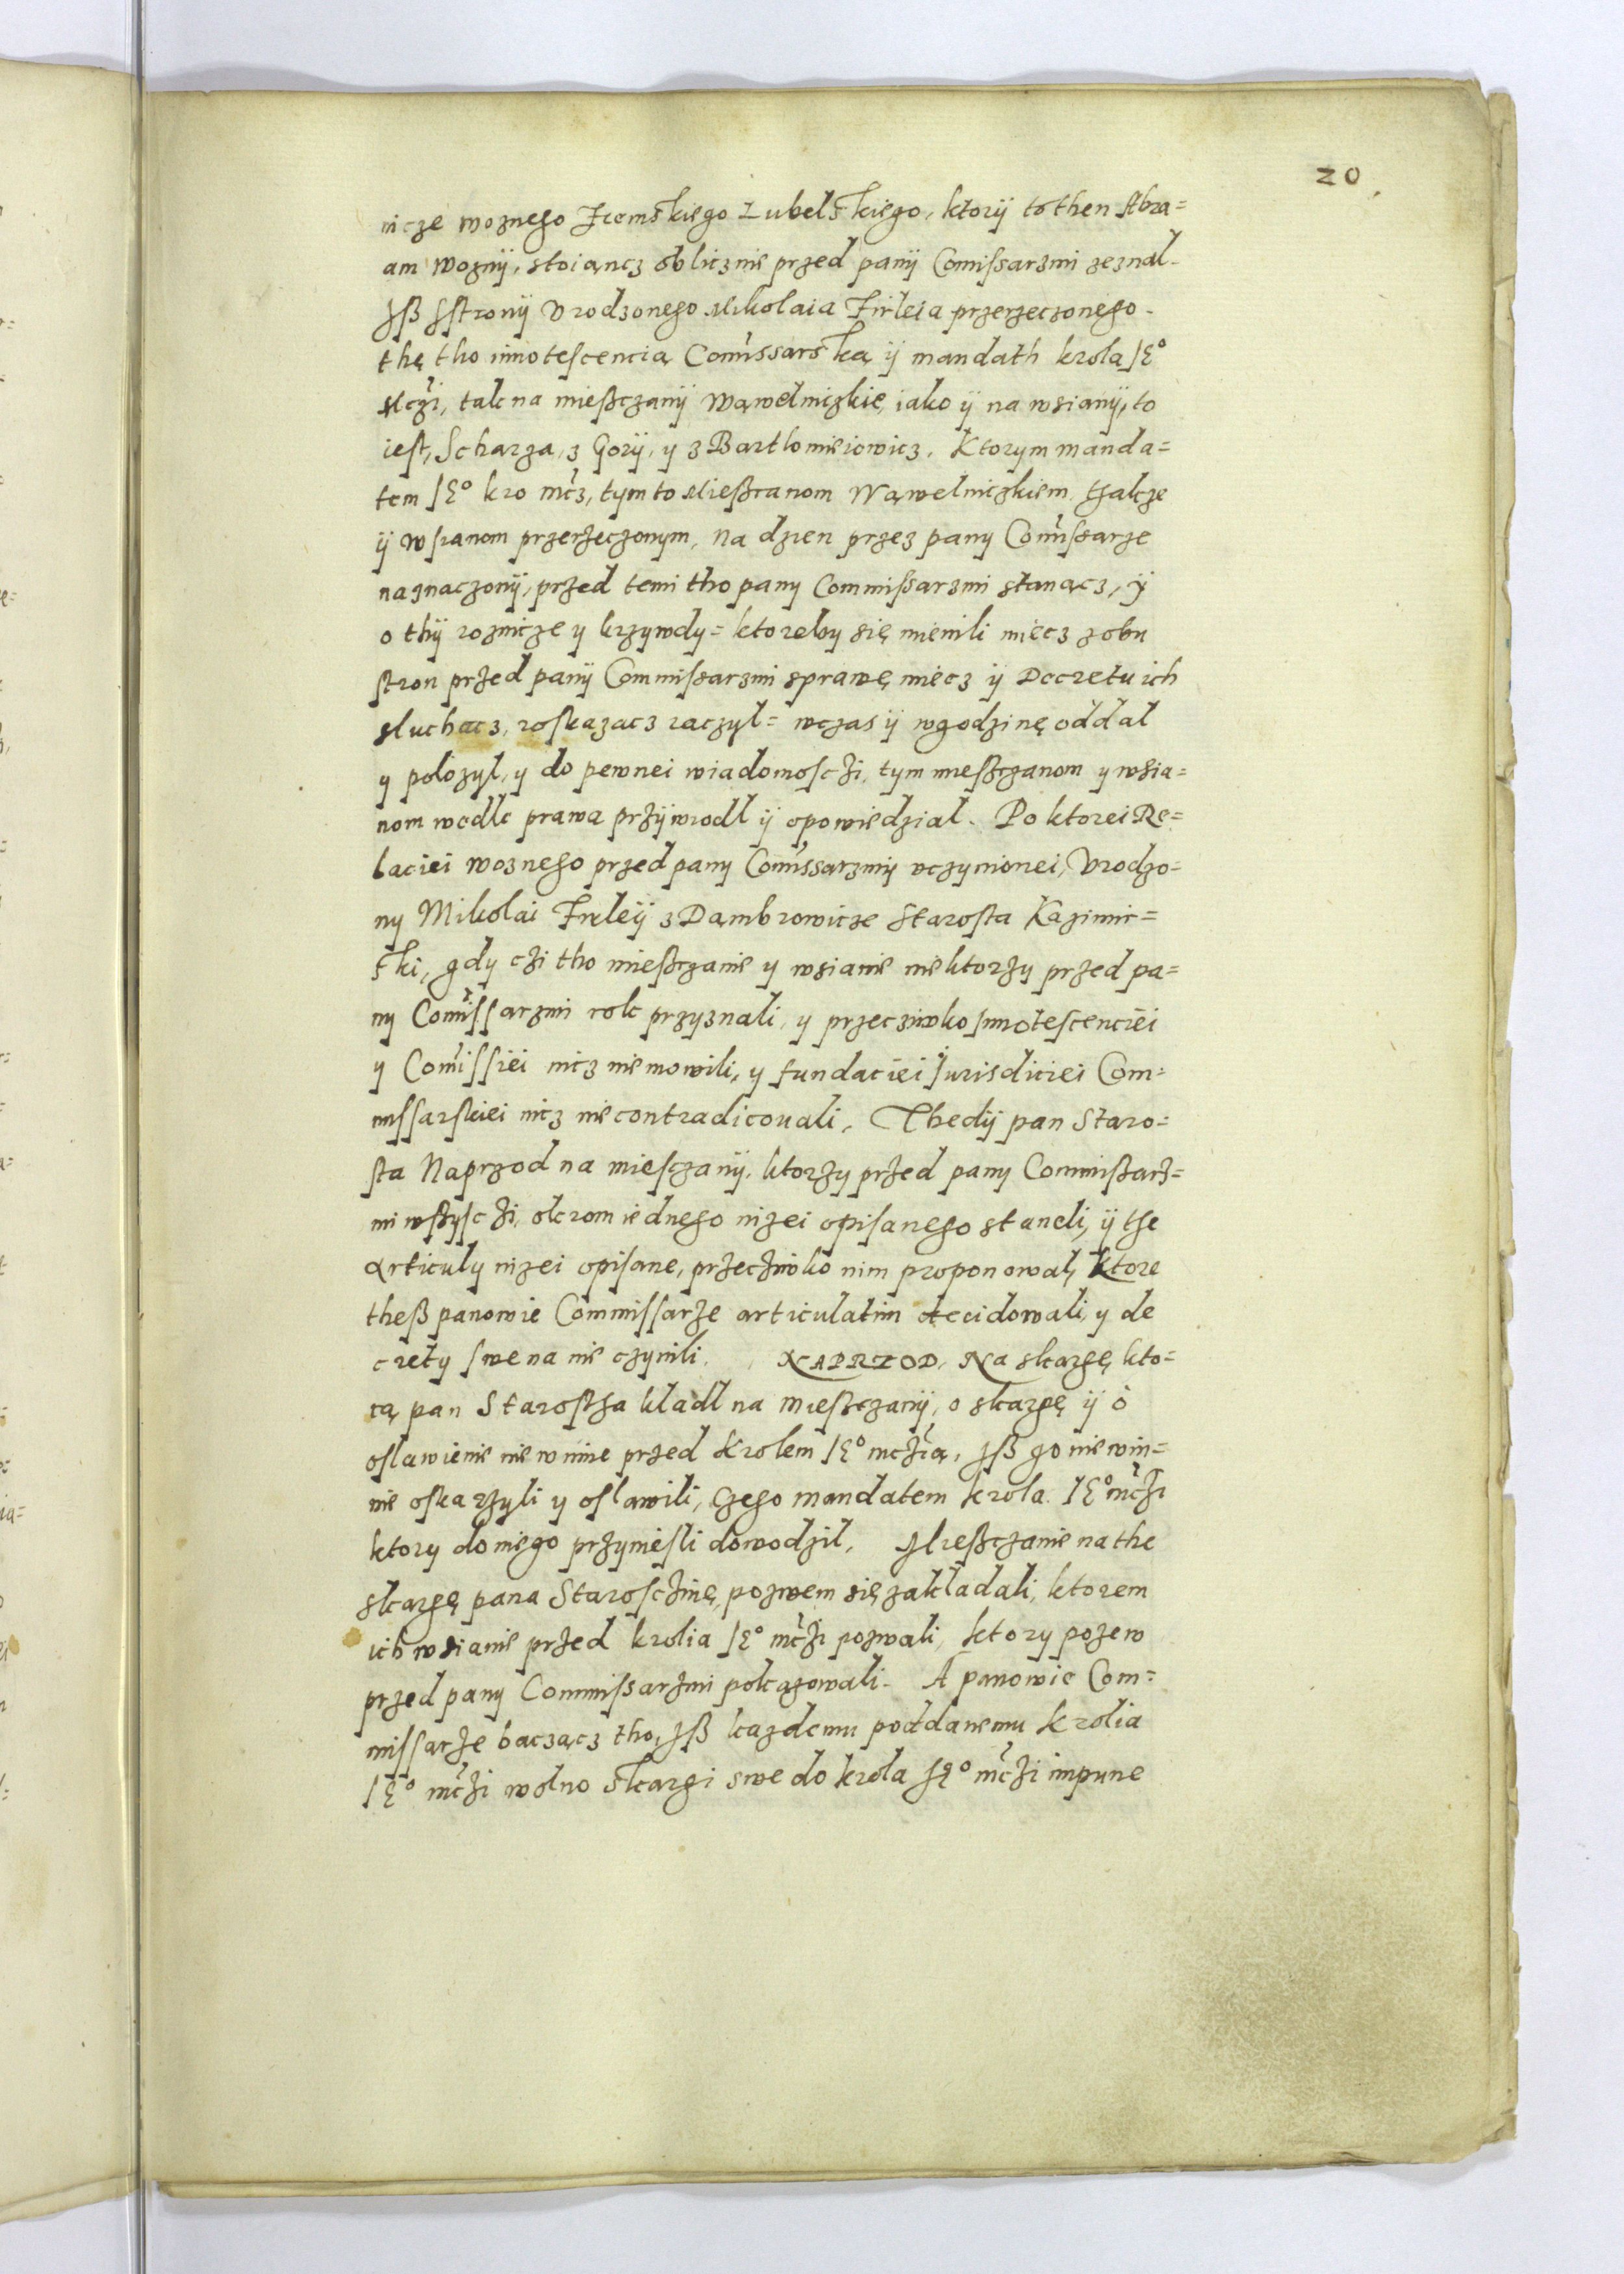 20
nicze woznego Ziemskiego Lubelskiego, ktorÿ tothen Abra=
am woznÿ, stoiąncz oblicznie przed panÿ Comissarzmi zeznal.
Iß Istronÿ Urodzonego Mikolaia Firleia przerzeczonego.
thę tho innotescencią Comissarską ÿ mandath krola IE°
Mczi, tak na mießczanÿ Wąwelniczkie, iako ÿ na wsianÿ, to
iest, Scharza, z Gorÿ, y z Bartlomieiowicz. Ktorym manda=
tem IE° kro mcz, tym to Mießcanom Wąwelniczkiem, thakze
ÿ wsianom przerzeczonym, na dzien przez pany Comissarze
naznaczonÿ, przed temi tho pany Commissarzmi stanącz, ÿ
o thÿ roznicze y krzywdy= ktoreby się mienili miecz zobu
stron przed panÿ Commissarzmi sprawę miecz ÿ Decretu ich
sluchacz, roskazacz raczyl= wczas ÿ wgodzinę oddal
y polozyl, y do pewnei wiadomosczi, tym mießczanom y wsia=
nom wedle prawa przÿwiodl ÿ opowiedzial. Po ktorei Re=
laciei woznego przed pany Comissarzmÿ uczynionei, Urodzo=
ny Mikolai Firleÿ z Dambrowicze Starosta Kazimir=
ski, gdy czi tho mießczanie y wsianie niektorzy przed pa=
ny Comissarzmi rok przyznali, y przecziwko innotescenciei
y Comissiei nicz nie mowili, y fundaciei Jurisdiciei Com=
missarskiei nicz nie contradicouali, Thedÿ pan Staro=
sta Naprzod na miesczanÿ, ktorzy przed pany Commissarz=
mi wszysczi, okrom iednego nizei opisanego staneli, ÿ the
Articuly nizei opisane, przecziwko nim proponowal, ktore
theß panowie Commissarze articulatim decidowali, y de
crety swe na nie czynili. NAPRZOD, Na skargę kto=
rą pan Starostha kladl na mießczanÿ, o skargę ÿ o
oslawienie niewinne przed Krolem IE° mczią, Iß go niewin=
nie oskarzyli y oslawili, czego mandatem krola IE° mczi
ktory do niego przyniesli dowodzil, Mießczanie na the
skargę pana Starosczinę, pozwem się zakladali, ktorem
ich wsianie przed krolia IE° mczi pozwali, ktory pozew
przed pany Commissarzmi pokazowali. A panowie Com=
missarze bacząncz tho, Iß kazdemu poddanemu krolia
IE° mczi wolno skargi swe do krola IE° mczi impune